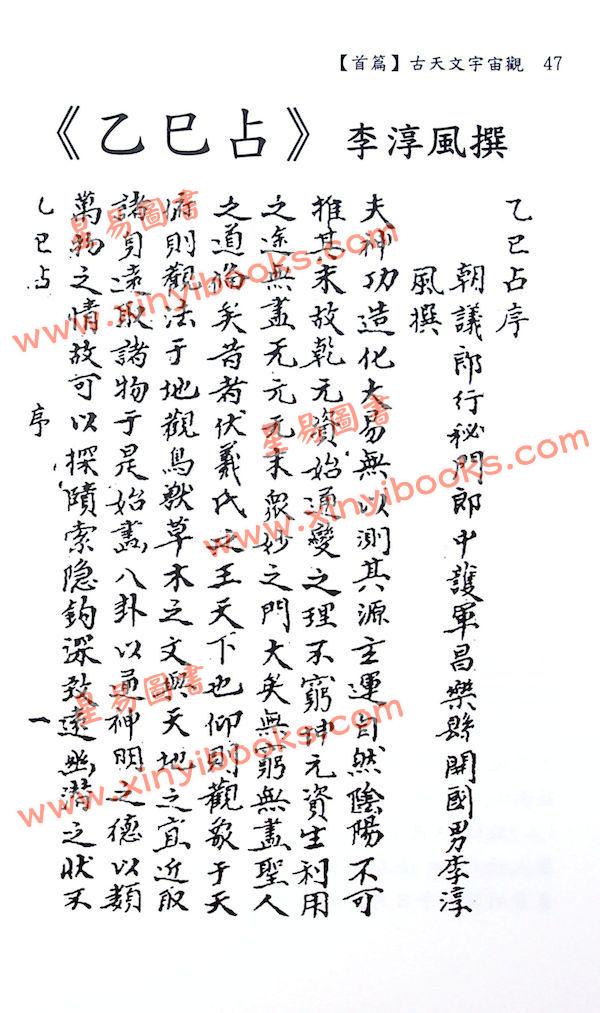 【首篇】古天文宇宙觀 47
《乙巳占》李淳風撰
乙巳占序
朝議郎行秘閣郎中護軍昌樂縣開國男李淳
風撰
夫神功造化大易無以測其源玄運自然陰陽不可
推其末故乾元資始通變之理不窮坤元資生利用
之途無盡无元无末衆妙之門大矣無窮無盡聖人
之道備矣昔者伏羲氏之王天下也仰則觀象于天
俯則觀法于地觀鳥獸草木之文與天地之宜近取
諸身遠取諸物于是始畫八卦以通神明之德以類
萬物之情故可以探賾索隐鈎深致遠幽潛之狀不
乙巳占 序 一
星易圖書
www.xinyibooks.com
星易圖書
www.xinyibooks.com
星易圖書
www.xinyibooks.com